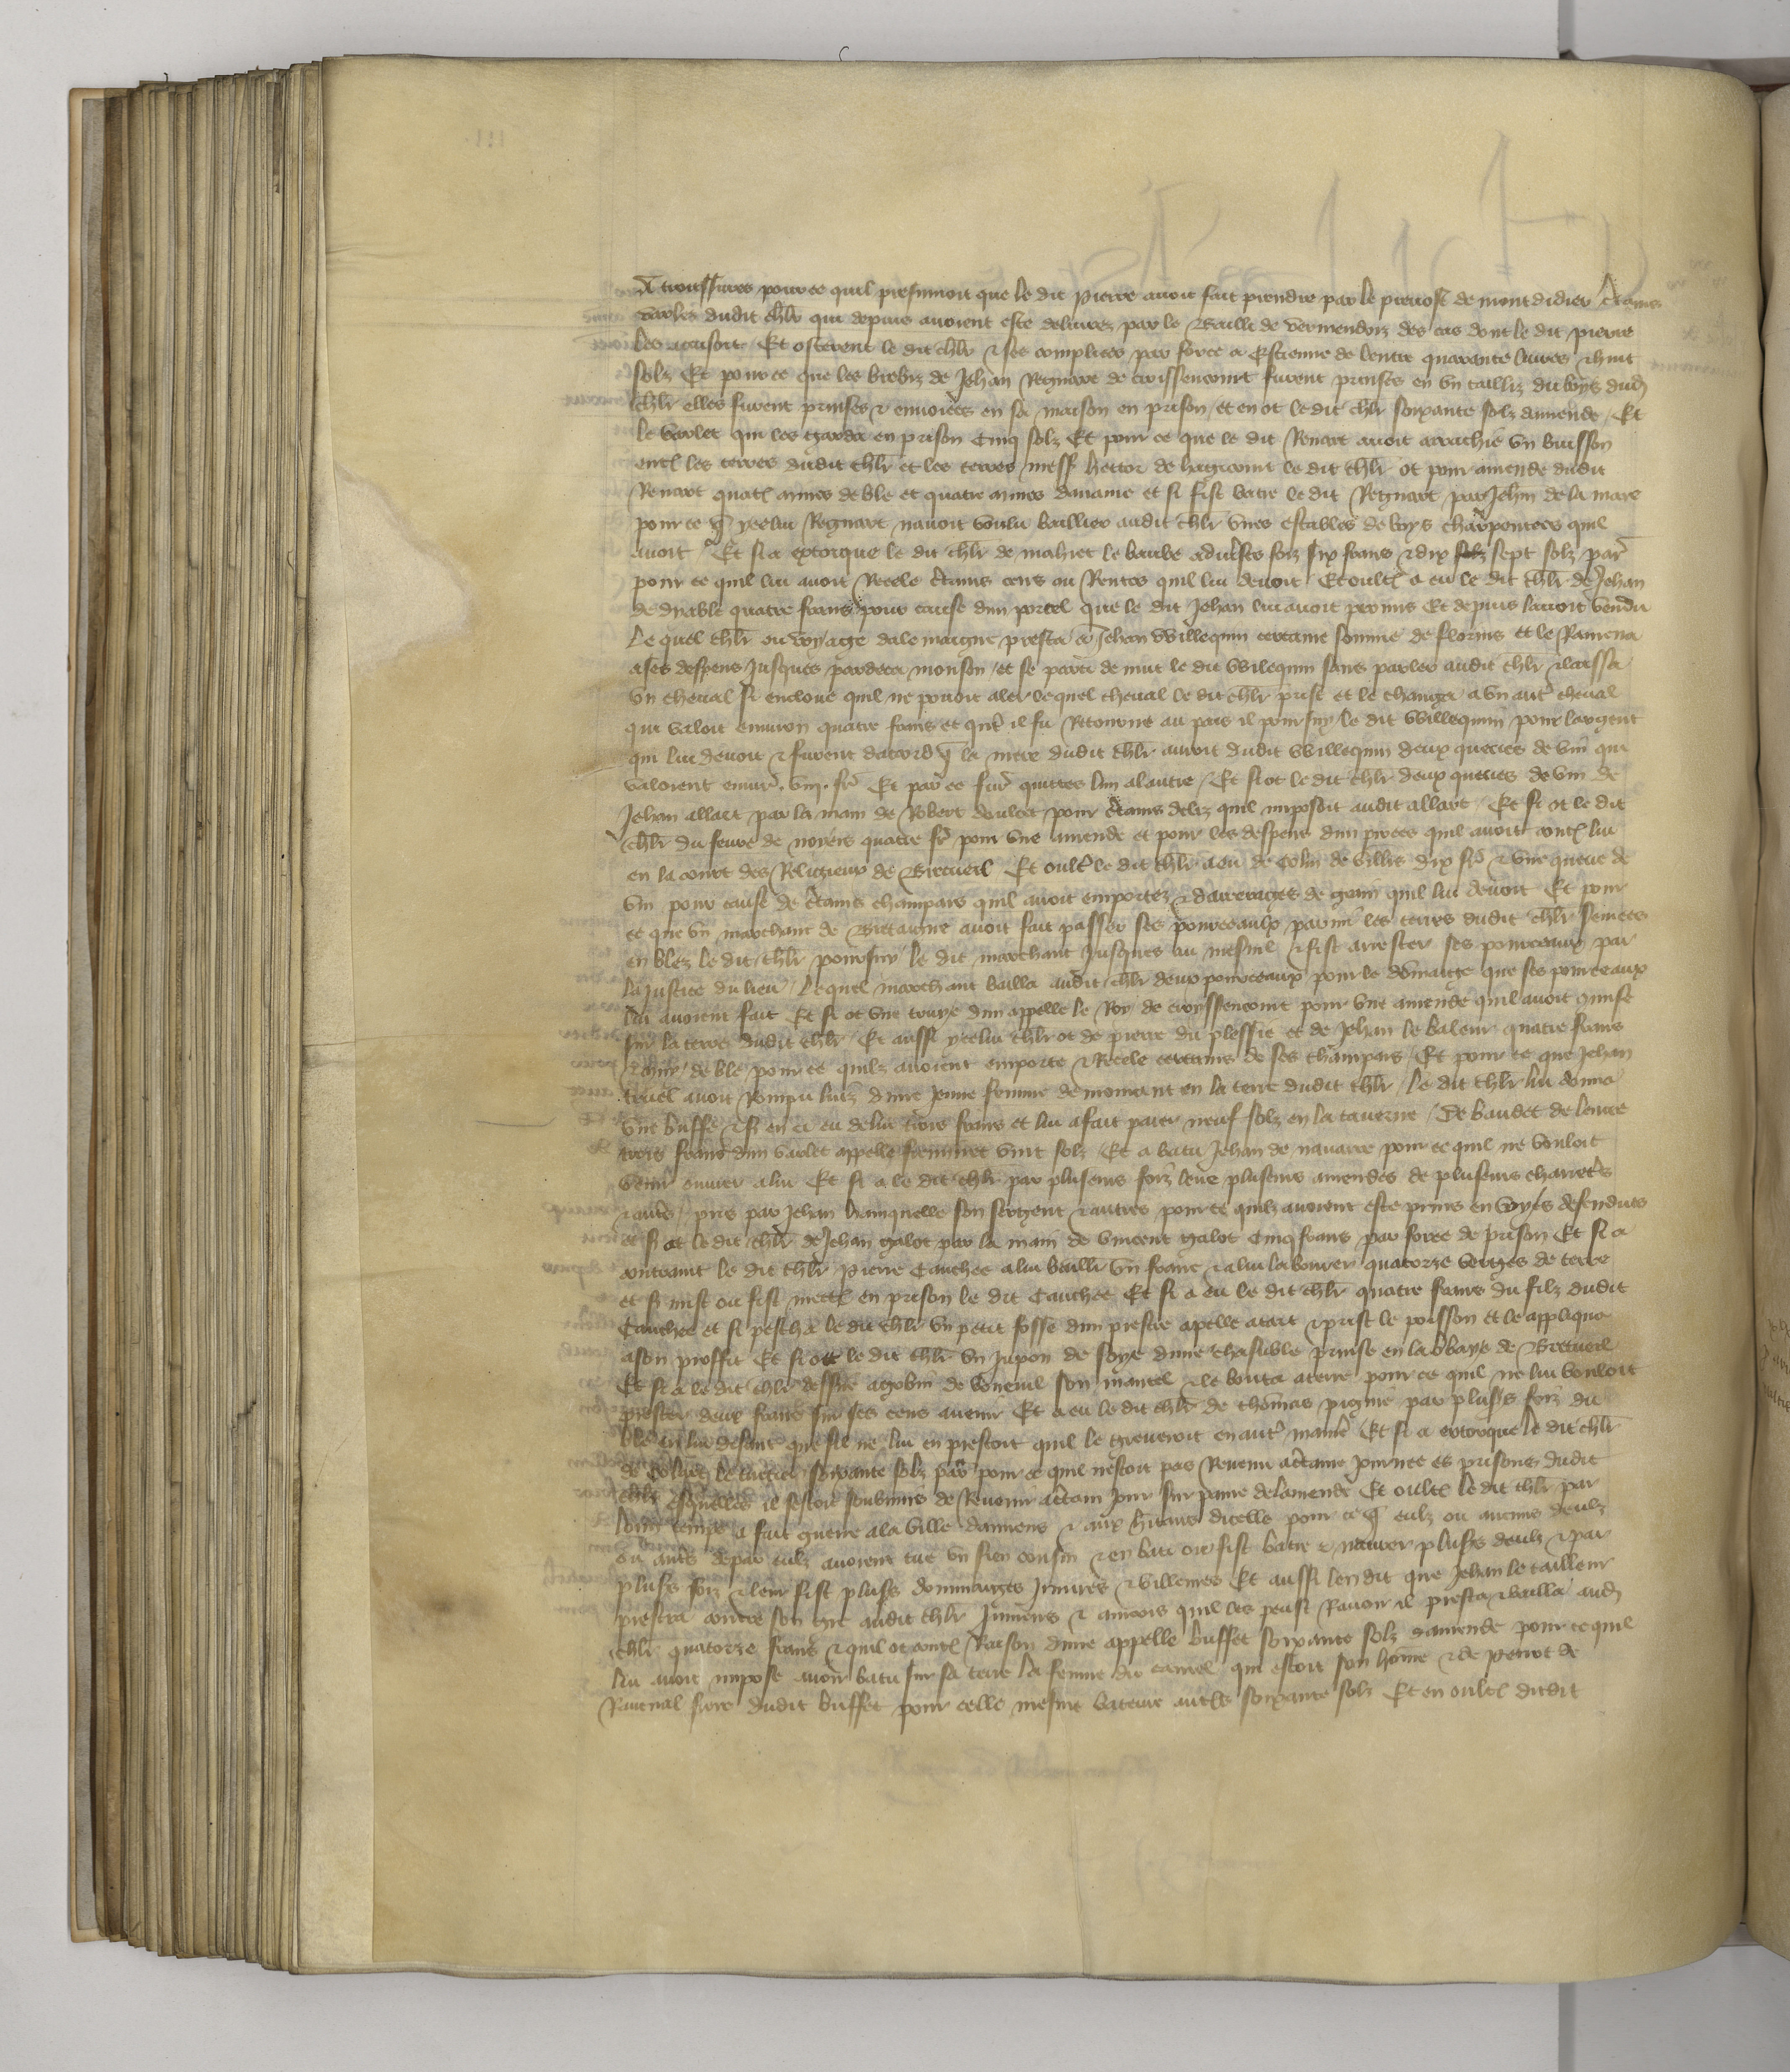 de troussures pour ce quil presumoit que le dit pierre avoit fait prendre par le prevost de mont didier c̃tains
varlez dudit chlr̃ qui depuis avoient este delivrez par le Bailli de vermendois des cas dont le dit pierre
les accusoit Et osterent le dit chlr̃ & ses complices par force a Estienne de lentre quarante livres & huit
solz Et pour ce que les brebiz de Jehan Regnart de croissencourt furent prinses en un tailliz du boys dud̃
chlr̃ elles furent prinses & envoiees en sa maison en prison / et en ot le dit chlr̃ soixante solz damende / Et
le varlet qui les garda en prison Cinq solz Et pour ce que le dit Renart avoit arrachie un buisson
ent̃ les terres dudit chlr̃ et les terres mess̃ hector de le dit chlr̃ ot pour amende dudit
Renart quat̃ mines de ble et quatre mines davaine et si fist batre le dit Regnart par Jehan de la mare
pour ce q̃ ycelui Regnart navoit voulu baillier audit chlr̃ unes estables de boys charpentees quil
avoit Et si a extorque le dit chlr̃ de mahiet le bauble a divẽses foiz six frans & dix solz sept solz par̃
pour ce quil lui avoit Recele c̃tains cens ou Rentes quil lui devoit Et oult̃ a eu le dit chlr̃ de Jehan
de quatre frans pour cause dun porcel que le dit Jehan lui avoit promis Et depuis lavoit vendu
le quel chlr̃ ou voyage dalemaigne presta a Jehan Willequin certaine somme de florins et le Ramena
a ses despens Jusques pardeca monson / et se parti de nuit le dit Willequin sans parler audit chlr̃ & laissa
un cheval si encloue quil ne povoit aler lequel cheval le dit chlr̃ prist et le changa a un aut̃ cheval
qui valoit environ quatre frans et qñt il fu Retourne au pais il poursuy le dit Willequin pour largent
qui lui devoit & furent dacord q̃ la mere dudit chlr̃ auroit dudit Willequin deux queues de vin qui
valoient envir̃ . viij . fr̃ Et par ce fur̃ quittes lun a lautre / Et si ot le dit chlr̃ deux queues de vin de
Jehan allart par la main de Robert pour c̃tains deliz quil imposoit audit allart / Et si ot le dit
chlr̃ du fevre de noiers quatre fr̃ pour une amende et pour les despens dun proces quil avoit cont̃ lui
en la court des Religieux de Bretueil Et oult̃ le dit chlr̃ a eu de Colin de villers dix fr̃ & une queue de
vin pour cause de c̃tains champars quil avoit emportez & darrerages de grain quil lui devoit Et pour
ce que un marchant de Bretaigne avoit fait passer ses pourceaulx parmi les terres dudit chlr̃ semees
en blez le dit chlr̃ poursuy le dit marchant Jusques au mesnil & fist arrester ses pourceaux par
la Justice du lieu / Le quel marchant bailla audit chlr̃ deux pourceaux pour le domaige que ses pourceaux
lui avoient fait Et si ot une truye dun appelle le Roy de croyssencourt pour une amende quil avoit commise
sur la terre dudit chlr̃ / Et aussi ycelui chlr̃ ot de pierre du plessie et de Jehan le baleur quatre frans
de ble pour ce quilz avoient emporte & Recele certains de ses champars / Et pour ce que Jehan
avoit Rompu luiz dune Jeune femme demourant en la terre dudit chlr̃ / le dit chlr̃ lui donna
une buffe & si en a eu de lui trois frans et lui a fait paier neuf solz en la taverne / De baudet de lentre
trois frans dun varlet appelle vint solz / Et a batu Jehan de navarre pour ce quil ne vouloit
venir ouvrer a lui Et si a le dit chlr̃ par plusieurs foiz leve plusieurs amendes de plusieurs charretes
& aut̃s / pris par Jehan hanquelle son sergent & autres pour ce quilz avoient este prins en voyes defendues
et si ot le dit chlr̃ de Jehan galot par la main de vincent galot Cinq frans par force de prison Et si a
contraint le dit chlr̃ Pierre Cauchee a lui baillr̃ un franc & a lui labourer quatorze verges de terre
et si mist ou fist mett̃ en prison le dit Cauchee Et si a eu le dit chlr̃ quatre frans du filz dudit
Cauchee et si pescha le dit chlr̃ un petit fosse dun prestre apelle atart & prist le poisson et le appliqua
a son proffit Et si ot le dit chlr̃ un Jupon de soye dune chasuble prinse en labbaye de Bretueil
Et si a le dit chlr̃ dessire a gobin de bonueil son mantel & le bouta a terre pour ce quil ne lui vouloit
prester deux frans sur ses cens avenir Et a eu le dit chlr̃ de thomas pigne par plus̃s foiz du
ble en lui disant que sil ne lui en prestoit quil le greveroit en aut̃ maniẽ Et si a extorque le dit chlr̃
de soixante solz par̃ pour ce quil nestoit pas Revenu a c̃taine journee es prisons dudit
chlr̃ esquelles il sestoit soubzmis de Revenir a c̃tain jour sur paine de lamende Et oult̃ le dit chlr̃ par
long temps a fait guerre a la ville damiens & aux h̃itans dicelle pour ce q̃ eulz ou aucuns deulz
ou aut̃s depar eulz avoient tue un sien cousin & en bati ou fist batre & navrer plus̃s deulz & par
plus̃s foiz & leur fist plus̃s dommaiges Jniures & villenies Et aussi len dit que Jehan le tailleur
presta contre son gre audit chlr̃ & aincois quil les peust Ravoir il presta & bailla aud̃
chlr̃ quatorze frans & quil ot cont̃ Raison dune appelle buffet soixante solz damende pour ce quil
lui avoit impose avoir batu sur sa terre la femme du qui estoit son home & de perrot de
Ravenal frere dudit buffet pour celle mesme bateure aut̃s soixante solz Et en oult̃ dit dit